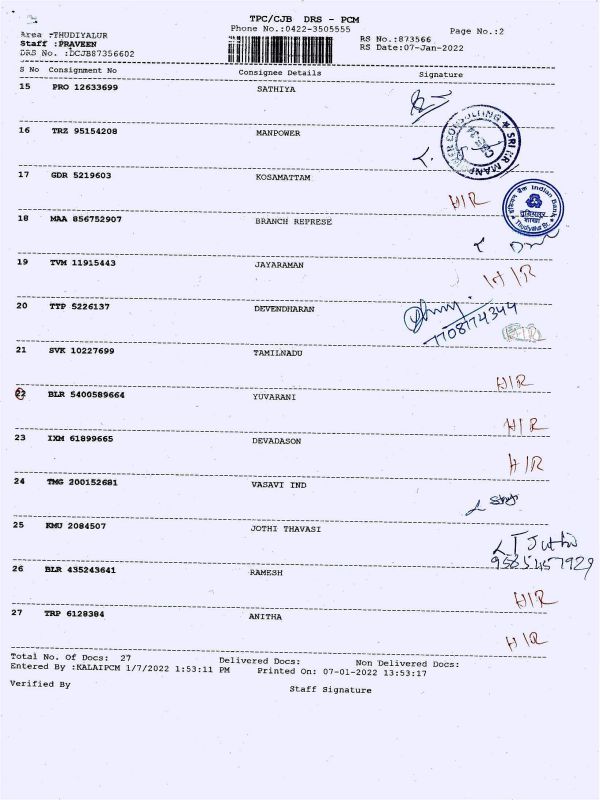 TPC/CJB DRS - PCM
Area :THUDIYALUR Phone No.:0422-3505555 Page No.:2
Staff :PRAVEEN RS No.:873566
DRS No. :DCJB87356602 RS Date:07-Jan-2022
S No Consignment No Consignee Details Signature
15 PRO 12633699 SATHIYA
16 TRZ 95154208 MANPOWER
17 GDR 5219603 KOSAMATTAM H/R
Indian Bank
18 MAA 856752907 BRANCH REPRESE
19 TVM 11915443 JAYARAMAN H/R
20 TTP 5226137 DEVENDHARAN
7708174344
21 SVK 10227699 TAMILNADU H/R
22 BLR 5400589664 YUVARANI H/R
23 IXM 61899665 DEVADASON H/R
24 TMG 200152681 VASAVI IND
25 KMU 2084507 JOTHI THAVASI
9585457929
26 BLR 435243641 RAMESH H/R
27 TRP 6128384 ANITHA H/R
Total No. Of Docs: 27 Delivered Docs: Non Delivered Docs:
Entered By :KALAIPCM 1/7/2022 1:53:11 PM Printed On: 07-01-2022 13:53:17
Verified By Staff Signature